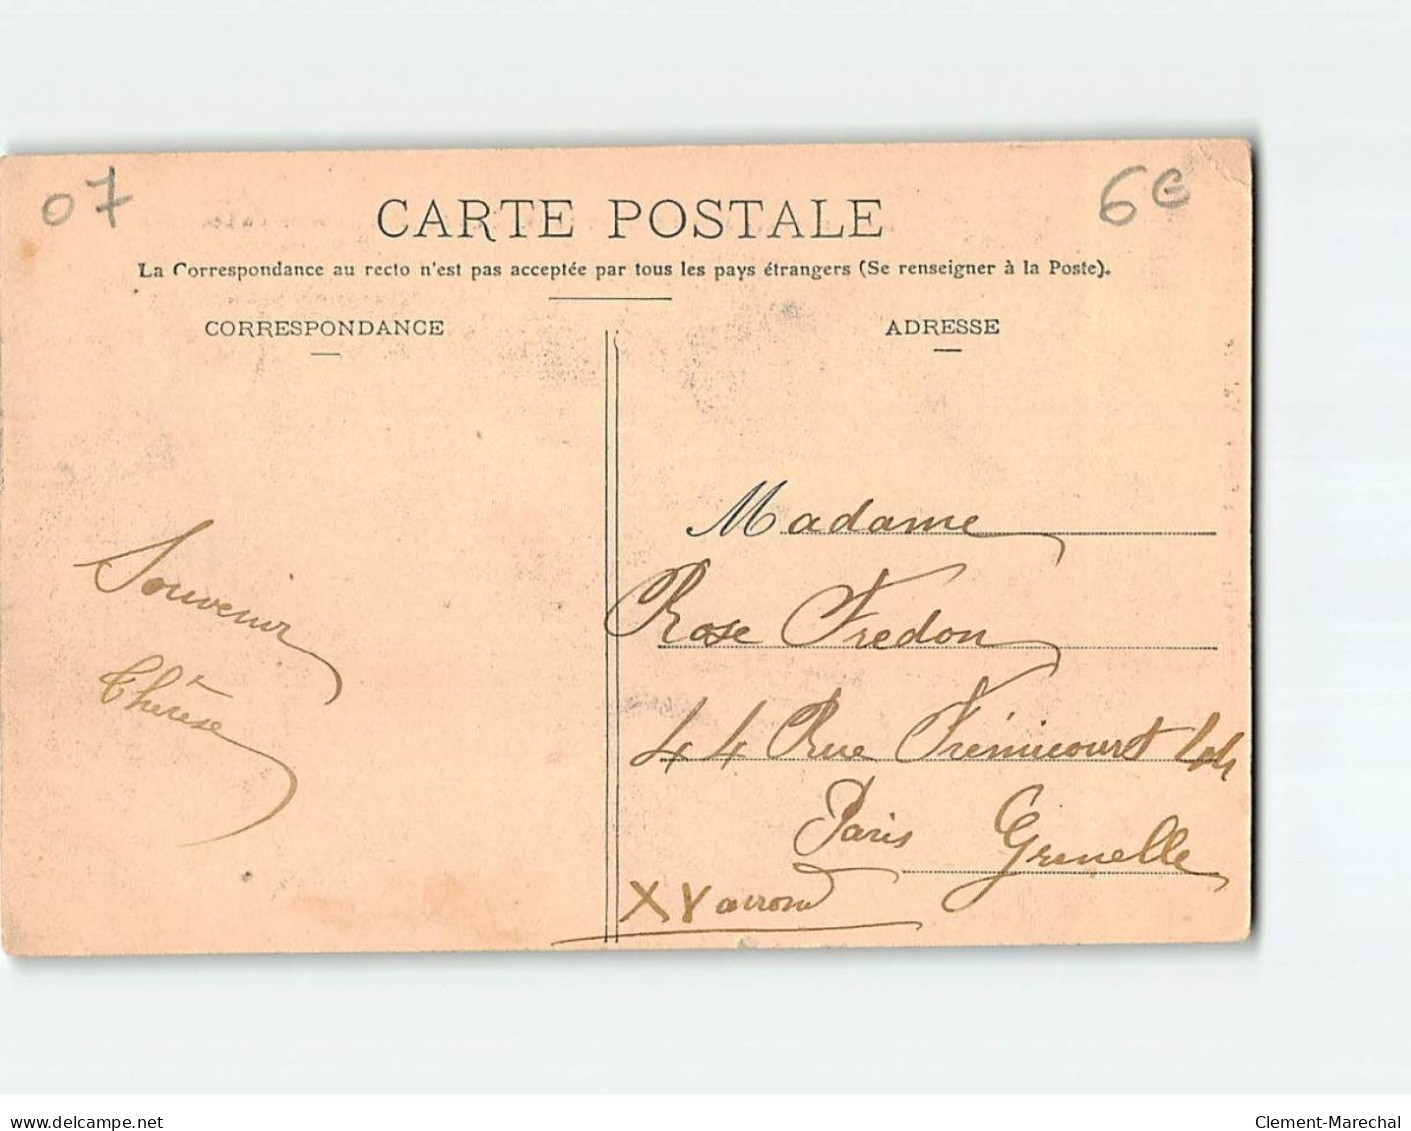 07
6€
CARTE POSTALE
La Correspondance au recto n'est pas acceptée par tous les pays étrangers (Se renseigner à la Poste).
CORRESPONDANCE
ADRESSE
Souvenir
Thérèse
Madame
Rose Fredon
44 Rue Frémicourt 44
Paris Grenelle
XV arrond
delcampe.net
Clement-Marechal